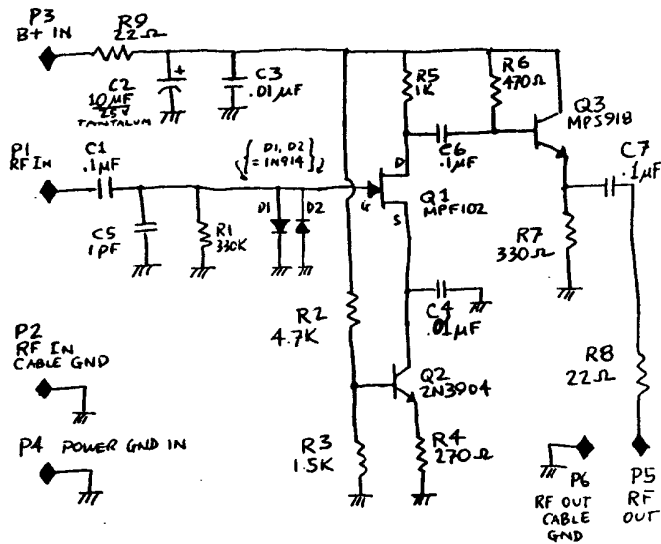 P3
B+ IN
R9
22Ω
C2
10μF
25V
TANTALUM
+
C3
.01μF
R5
1K
R6
470Ω
Q3
MPS918
P1
RF IN
C1
.1μF
{ D1, D2
= 1N914 }
D
C6
.1μF
C7
.1μF
G
Q1
MPF102
S
C5
1PF
R1
330K
D1
D2
R7
330Ω
C4
.01μF
R2
4.7K
P2
RF IN
CABLE GND
Q2
2N3904
R8
22Ω
P4 POWER GND IN
R3
1.5K
R4
270Ω
P6
RF OUT
CABLE
GND
P5
RF
OUT